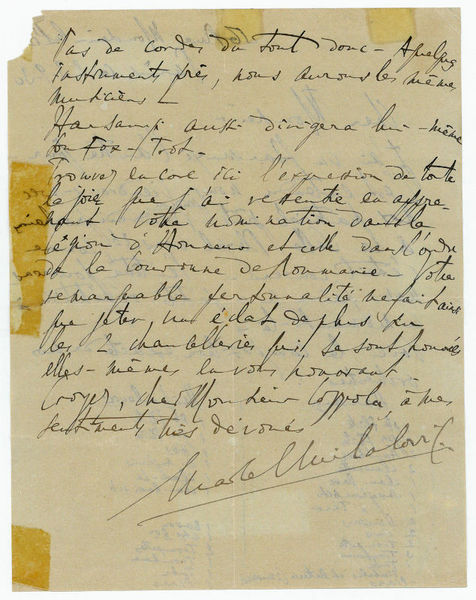 Pas de cordes du tout donc - A quelques
instruments près, nous aurons les mêmes
musiciens -
Harsanyi aussi dirigera lui-même
son Fox-Trot.
Trouvez encore ici l'expression de toute
la joie que j'ai ressentie en appre-
nant votre nomination dans la
Légion d'Honneur et celle dans l'ordre
de la Couronne de Roumanie. Votre
remarquable personnalité ne fait ainsi
que jeter un éclat de plus sur
les 2 chancelleries qui se sont honorées
elles-mêmes en vous honorant
Croyez, cher Monsieur Coppola, à mes
sentiments très dévoués
Marcel Mihalovici